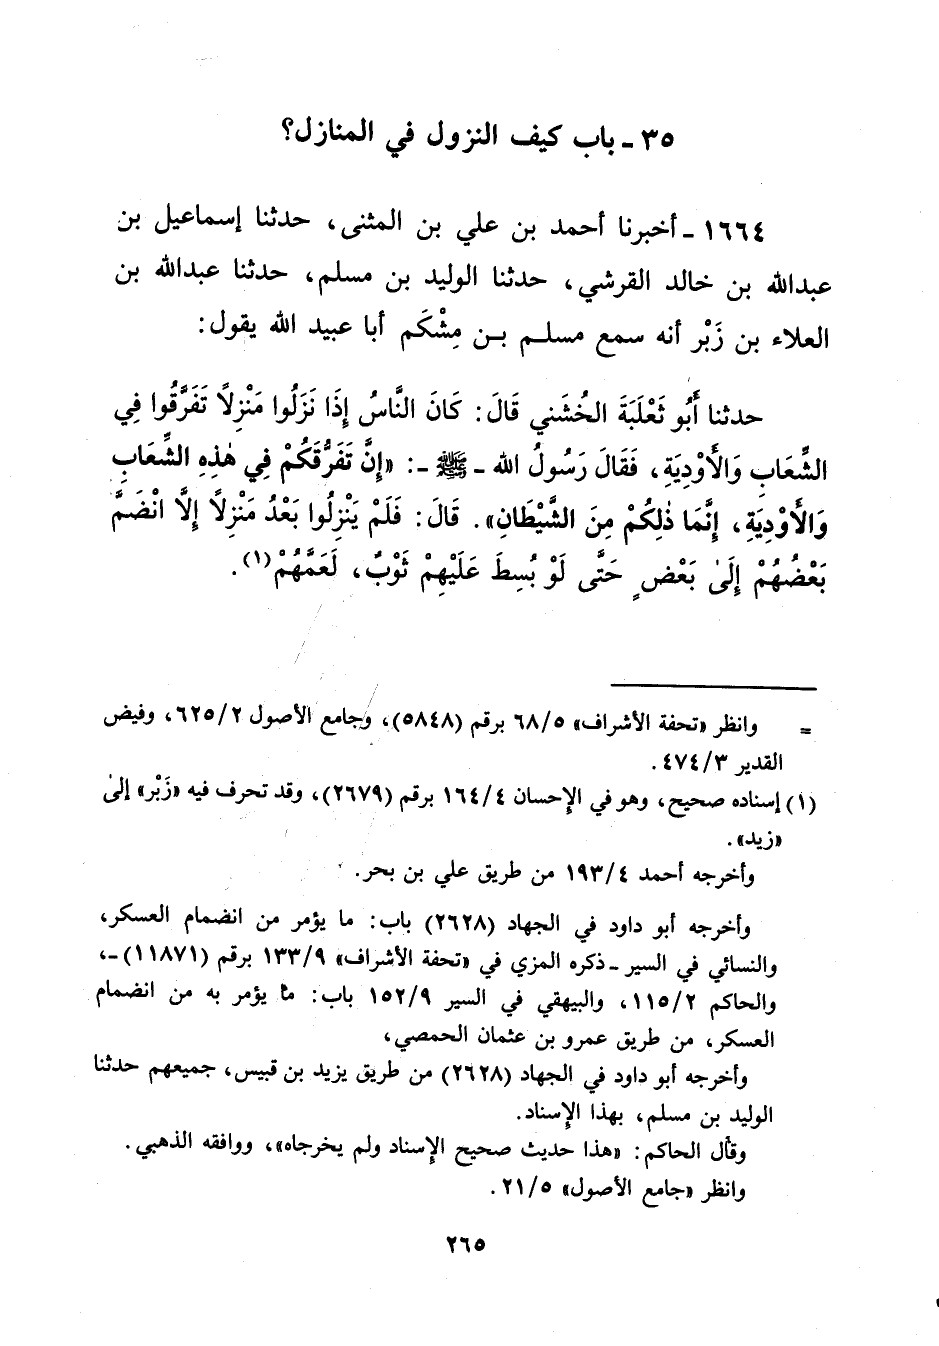 ٣٥ ـ باب كيف النزول في المنازل؟
١٦٦٤ ـ أخبرنا أحمد بن علي بن المثنى، حدثنا إسماعيل بن
عبدالله بن خالد القرشي، حدثنا الوليد بن مسلم، حدثنا عبدالله بن
العلاء بن زَبْر أنه سمع مسلم بن مِشْكَم أبا عبيد الله يقول:
حدثنا أَبُو ثَعْلَبَةَ الخُشَني قَالَ: كَانَ النَّاسُ إِذَا نَزَلُوا مَنْزِلاً تَفَرَّقُوا فِي
الشِّعَابِ وَالأَوْدِيَةِ، فَقَالَ رَسُولُ الله ـ ﷺ ـ: «إِنَّ تَفَرُّقَكُمْ فِي هٰذِهِ الشِّعَابِ
وَالأَوْدِيَةِ، إِنَّمَا ذٰلِكُمْ مِنَ الشَّيْطَانِ». قَالَ: فَلَمْ يَنْزِلُوا بَعْدُ مَنْزِلاً إِلَّا انْضَمَّ
بَعْضُهُمْ إِلَىٰ بَعْضٍ حَتَّى لَوْ بُسِطَ عَلَيْهِمْ ثَوْبٌ، لَعَمَّهُمْ(١).
= وانظر «تحفة الأشراف» ٦٨/٥ برقم (٥٨٤٨)، وجامع الأصول ٦٢٥/٢، وفيض
القدير ٤٧٤/٣.
(١) إسناده صحيح، وهو في الإحسان ١٦٤/٤ برقم (٢٦٧٩)، وقد تحرف فيه «زَبْر» إلىٰ
«زيد».
وأخرجه أحمد ١٩٣/٤ من طريق علي بن بحر.
وأخرجه أبو داود في الجهاد (٢٦٢٨) باب: ما يؤمر من انضمام العسكر،
والنسائي في السير ـ ذكره المزي في «تحفة الأشراف» ١٣٣/٩ برقم (١١٨٧١) ـ،
والحاكم ١١٥/٢، والبيهقي في السير ١٥٢/٩ باب: ما يؤمر به من انضمام
العسكر، من طريق عمرو بن عثمان الحمصي،
وأخرجه أبو داود في الجهاد (٢٦٢٨) من طريق يزيد بن قبيس، جميعهم حدثنا
الوليد بن مسلم، بهذا الإسناد.
وقال الحاكم: «هذا حديث صحيح الإسناد ولم يخرجاه»، ووافقه الذهبي.
وانظر «جامع الأصول» ٢١/٥.
٢٦٥